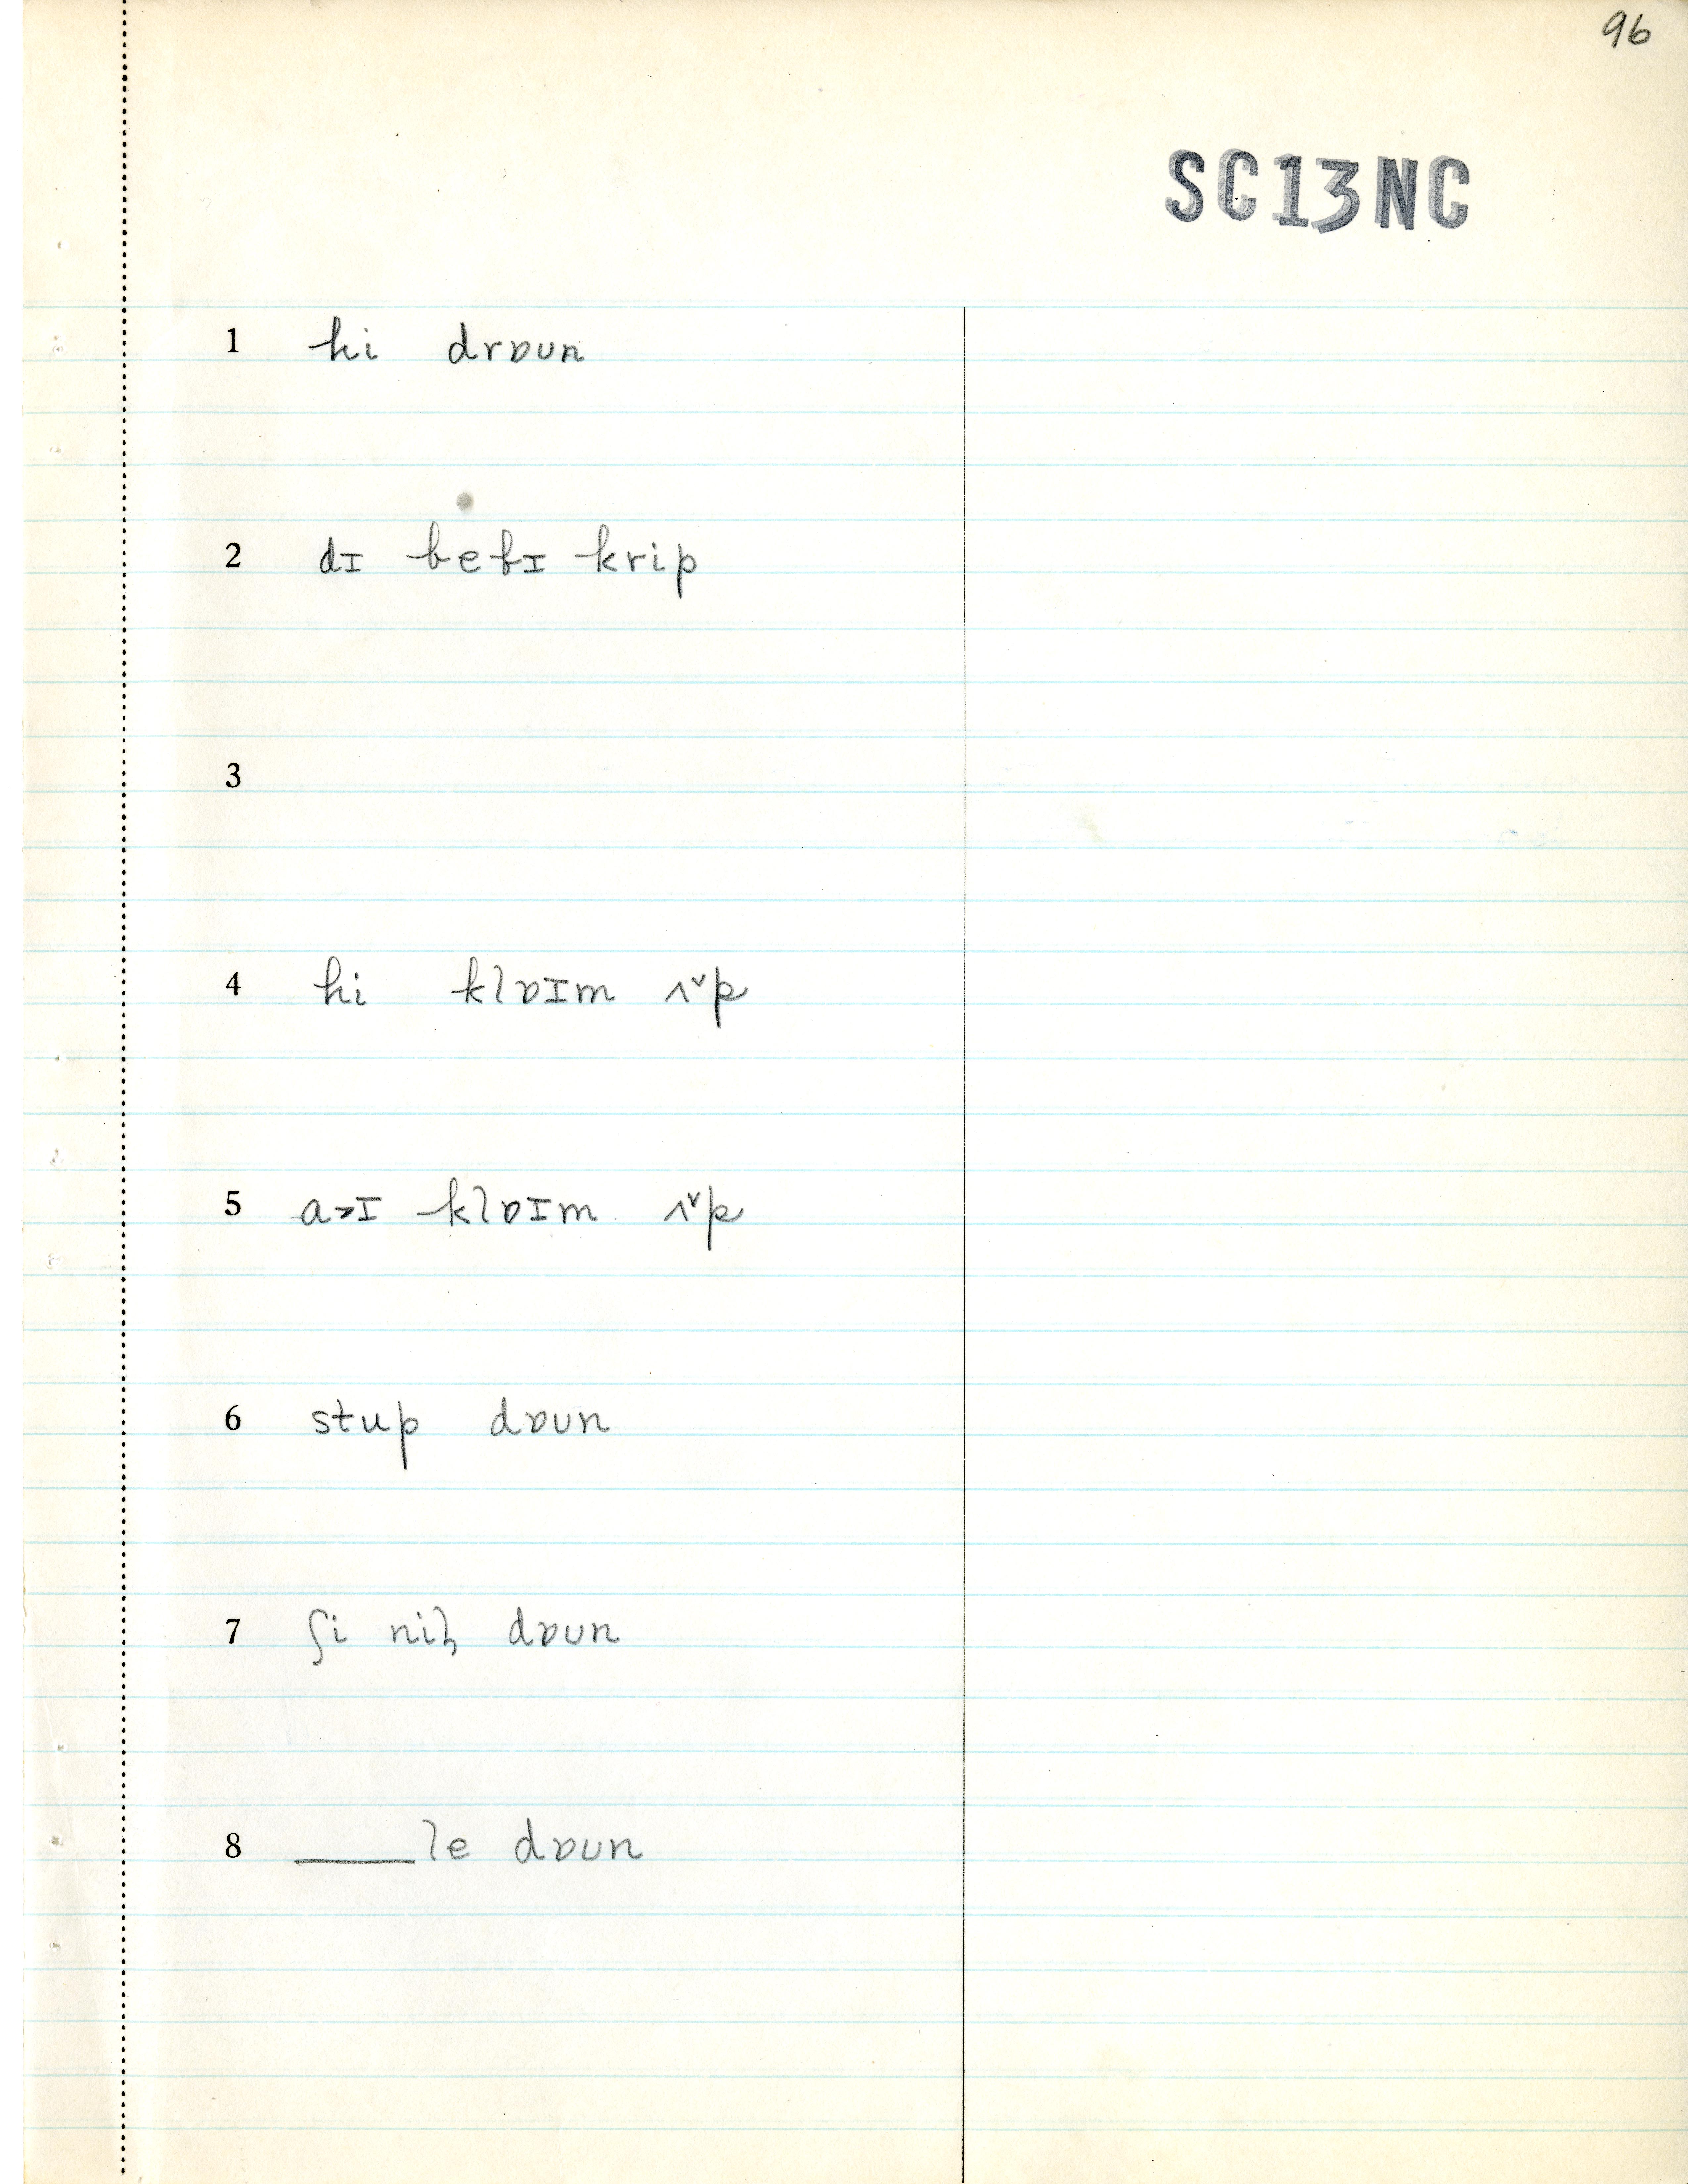 96
SC13NC
1 hi drɒun
2 dɪ bebɪ krip
3
4 hi klɒɪm ʌ˅p
5 a˃ɪ klɒɪm ʌ˅p
6 stup dɒun
7 ʃi niɫ dɒun
8 ____le dɒun